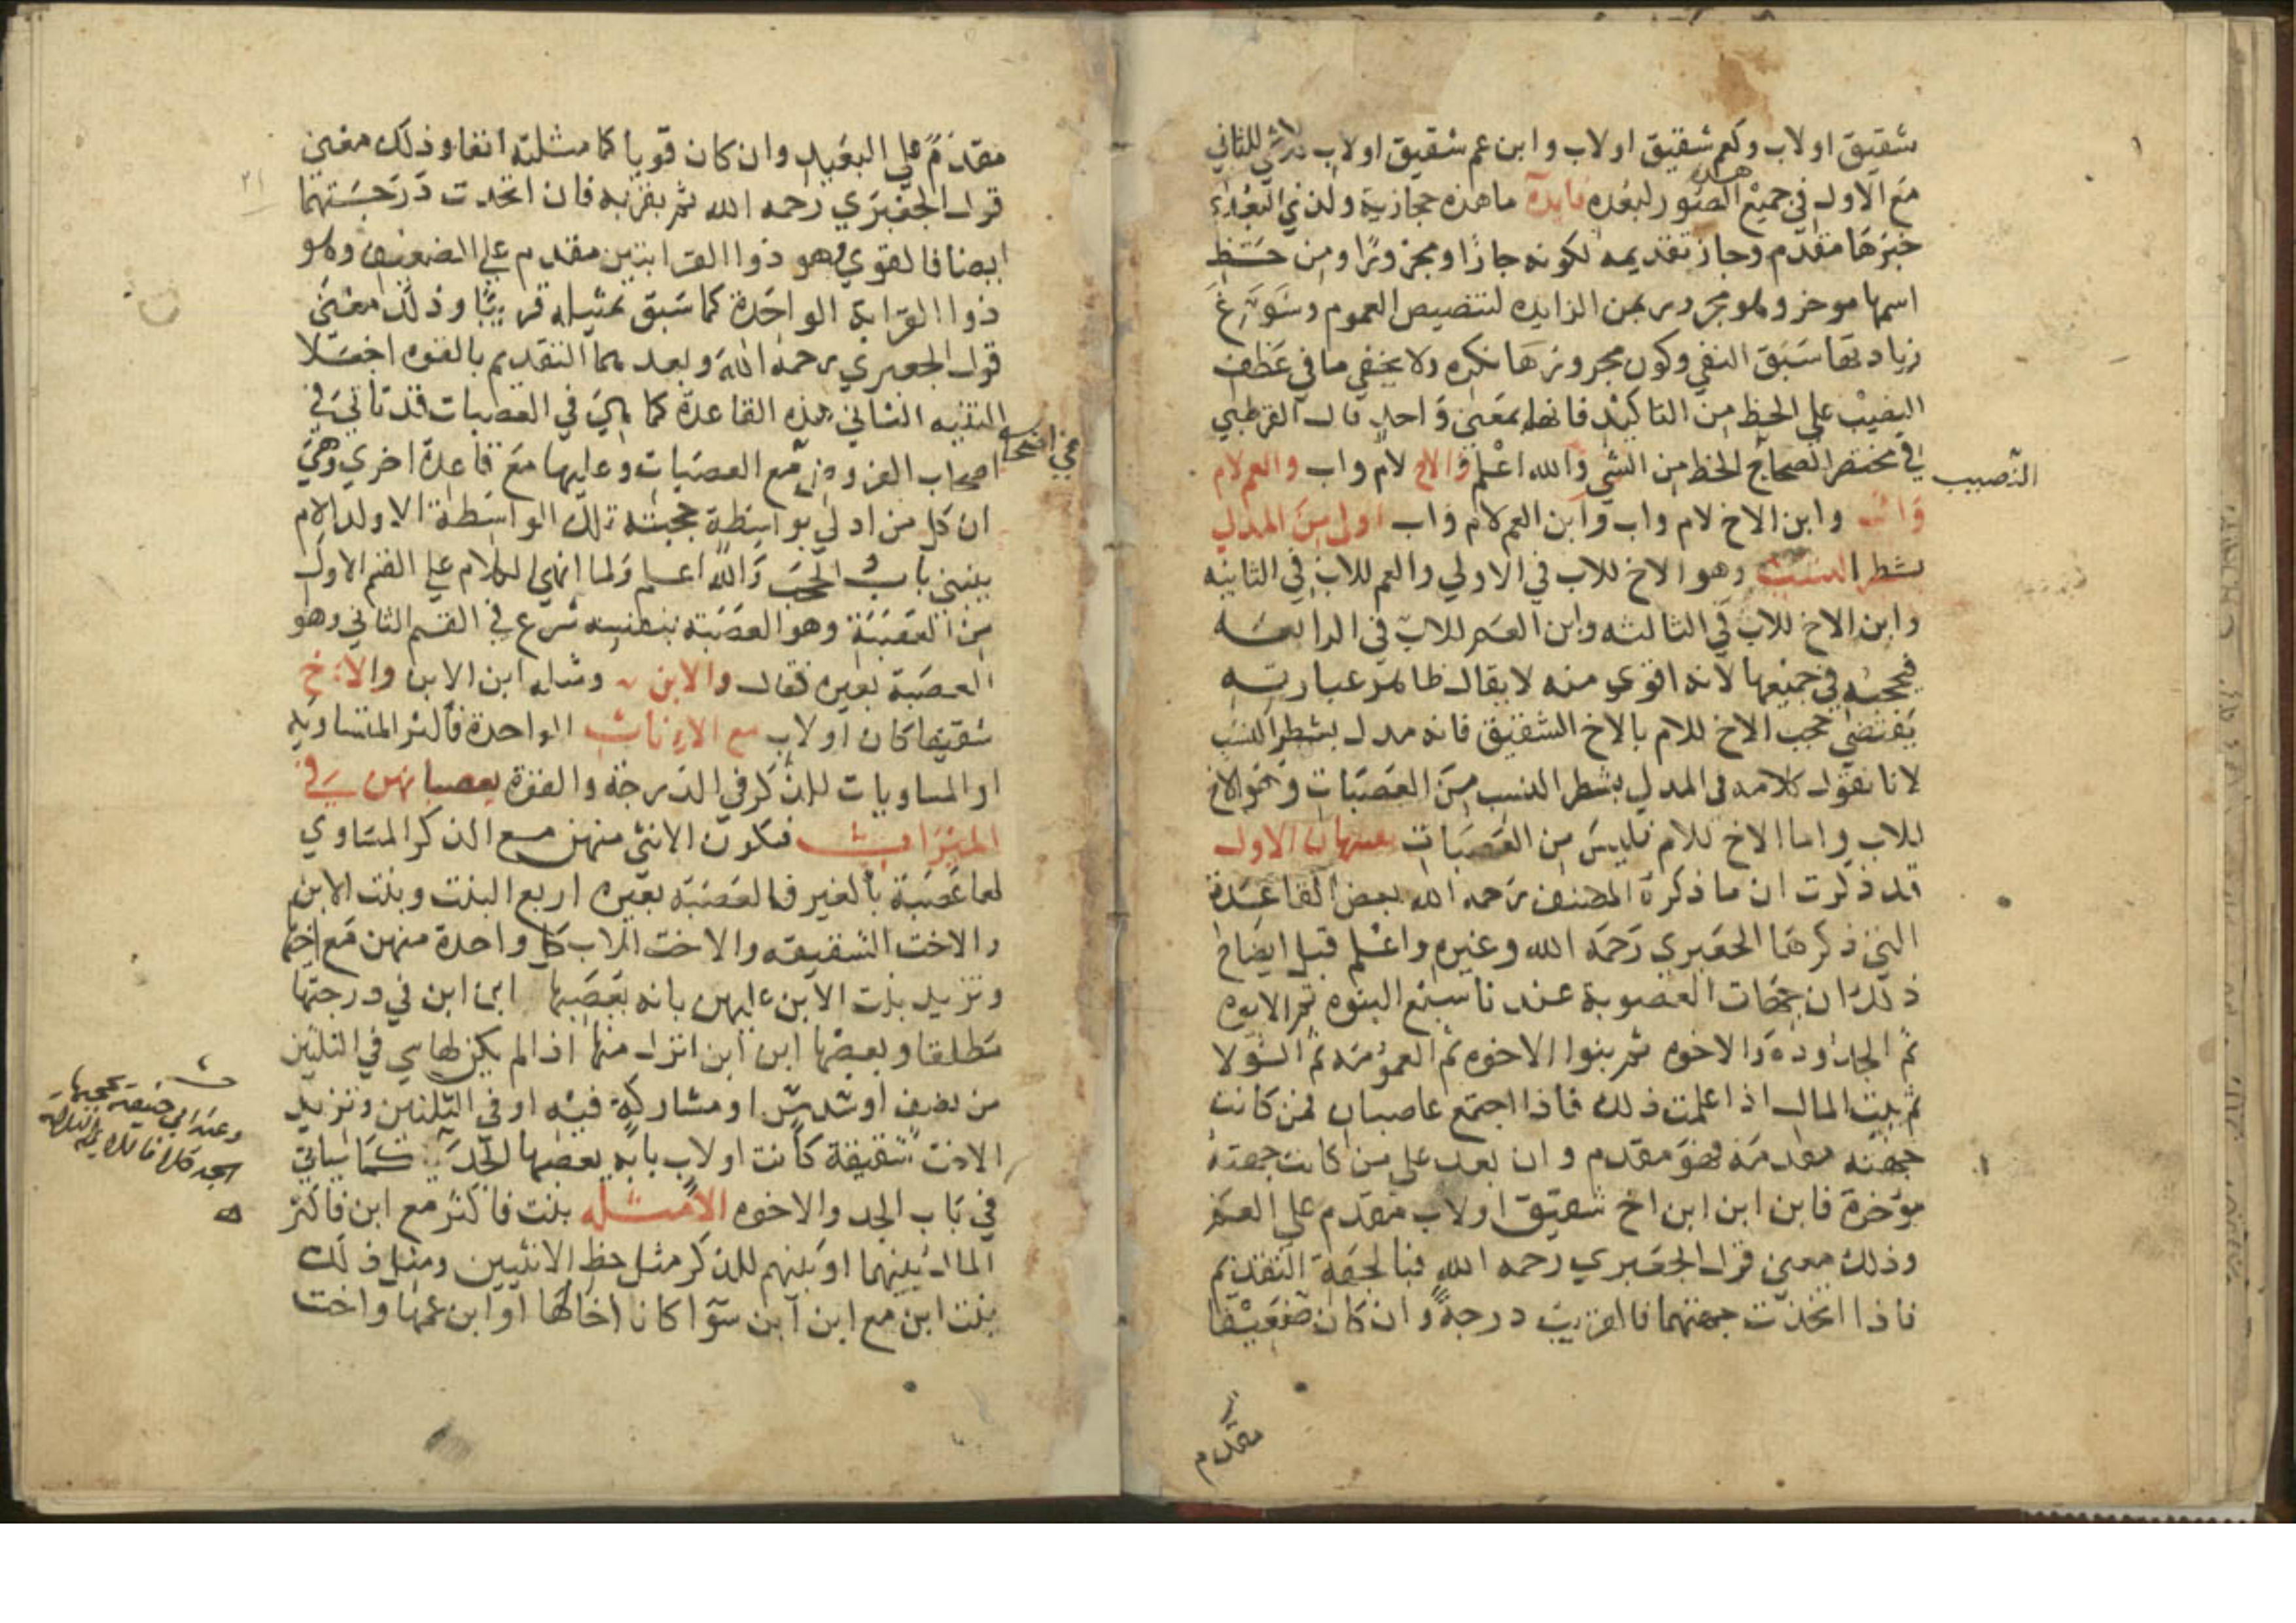 شقيق او لاب وكعم شقيق او لاب وابن عم شقيق او لاب لا شي للثاني
مع الاول في جميع هذه الصور لبعده فايدة ما هذه حجازية ولذي البعد
خبرها مقدم وجاز تقديمه لكونه جارا ومجرورا ومن حظ
اسمها موخر وهو مجرور بمن الزايده لتنصيص العموم وسوغ
زيادتها سبق النفي وكون مجرورها نكره ولا يخفي ما في عطف
النصيب علي الحظ من التاكيد فانهما بمعني واحد قال القرطبي
في مختصر الصحاح الحظ من الشي والله اعلم والاخ لام واب والعم لام
النصيب
واب وابن الاخ لام واب وابن العم لام واب اولي من المدلي
بشطر النسب وهو الاخ للاب في الاولي والعم للاب في الثانيه
وابن الاخ للاب في الثالثه وابن العم للاب في الرابعه
فيحجبه في جميعها لانه اقوي منه لا يقال ظاهر عبارته
يقتضي حجب الاخ للام بالاخ الشقيق فانه مدل بشطر النسب
لانا نقول كلامه في المدلي بشطر النسب من العصبات وهو الاخ
للاب واما الاخ للام فليس من العصبات تنبيهان الاول
قد ذكرت ان ما ذكره المصنف رحمه الله بعض القاعدة
التي ذكرها الجعبري رحمه الله وغيره واعلم قبل ايضاح
ذلك ان جهات العصوبة عندنا سبع البنوه ثم الابوه
ثم الجدودة والاخوه ثم بنوا الاخوه ثم العمومه ثم الولا
ثم بيت المال اذا علمت ذلك فاذا اجتمع عاصبان فمن كانت
جهته مقدمه فهو مقدم وان بعد علي من كانت جهته
موخرة فابن ابن ابن اخ شقيق او لاب مقدم علي العم
وذلك معني قول الجعبري رحمه الله فبالجهة التقديم
فاذا اتحدت جهتهما فالقريب درجة وان كان ضعيفا
مقدم
مقدم علي البعيد وان كان قويا كما مثلته انفا وذلك معني
قول الجعبري رحمه الله ثم بقربه فان اتحدت درجتهما
ايضا فالقوي وهو ذوا القرابتين مقدم علي الضعيف وهو
ذوا القرابة الواحدة كما سبق تمثيله قريبا وذلك معني
قول الجعبري رحمه الله وبعدهما التقديم بالقوه اجعلا
التنبيه الثاني هذه القاعدة كما هي في العصبات قد تاتي في
اصحاب الفروض مع العصبات وعليها مع قاعدة اخري وهي
ان كل من ادلي بواسطة حجبته تلك الواسطة الا ولد الام
ينبني باب الحجب والله اعلم ولما انهي الكلام علي القسم الاول
من العصبة وهو العصبة بنفسه شرع في القسم الثاني وهو
العصبة بغيره فقال والابن ومثله ابن الابن والاخ
شقيقا كان او لاب مع الاناث الواحدة فاكثر المتساويه
او المساويات للذكر في الدرجة والقوة يعصبانهن في
الميراث فتكون الانثي منهن مع الذكر المساوي
لها عصبة بالغير فالعصبة بغيره اربع البنت وبنت الابن
والاخت الشقيقه والاخت للاب كل واحدة منهن مع اخيها
وتزيد بنت الابن عليهن بانه يعصبها ابن ابن في درجتها
مطلقا ويعصبها ابن ابن انزل منها اذا لم يكن لها شي في الثلثين
من نصف او سدس او مشاركة فيه او في الثلثين وتزيد
الاخت شقيقة كانت او لاب بانه يعصبها الجد كما سياتي
وعند ابي حنيفة يحجبها
الجد
في باب الجد والاخوه الامثله بنت فاكثر مع ابن فاكثر
المال بينهما او بينهم للذكر مثل حظ الانثيين ومثل ذلك
بنت ابن مع ابن ابن سوا كان اخا لها او ابن عمها واخت